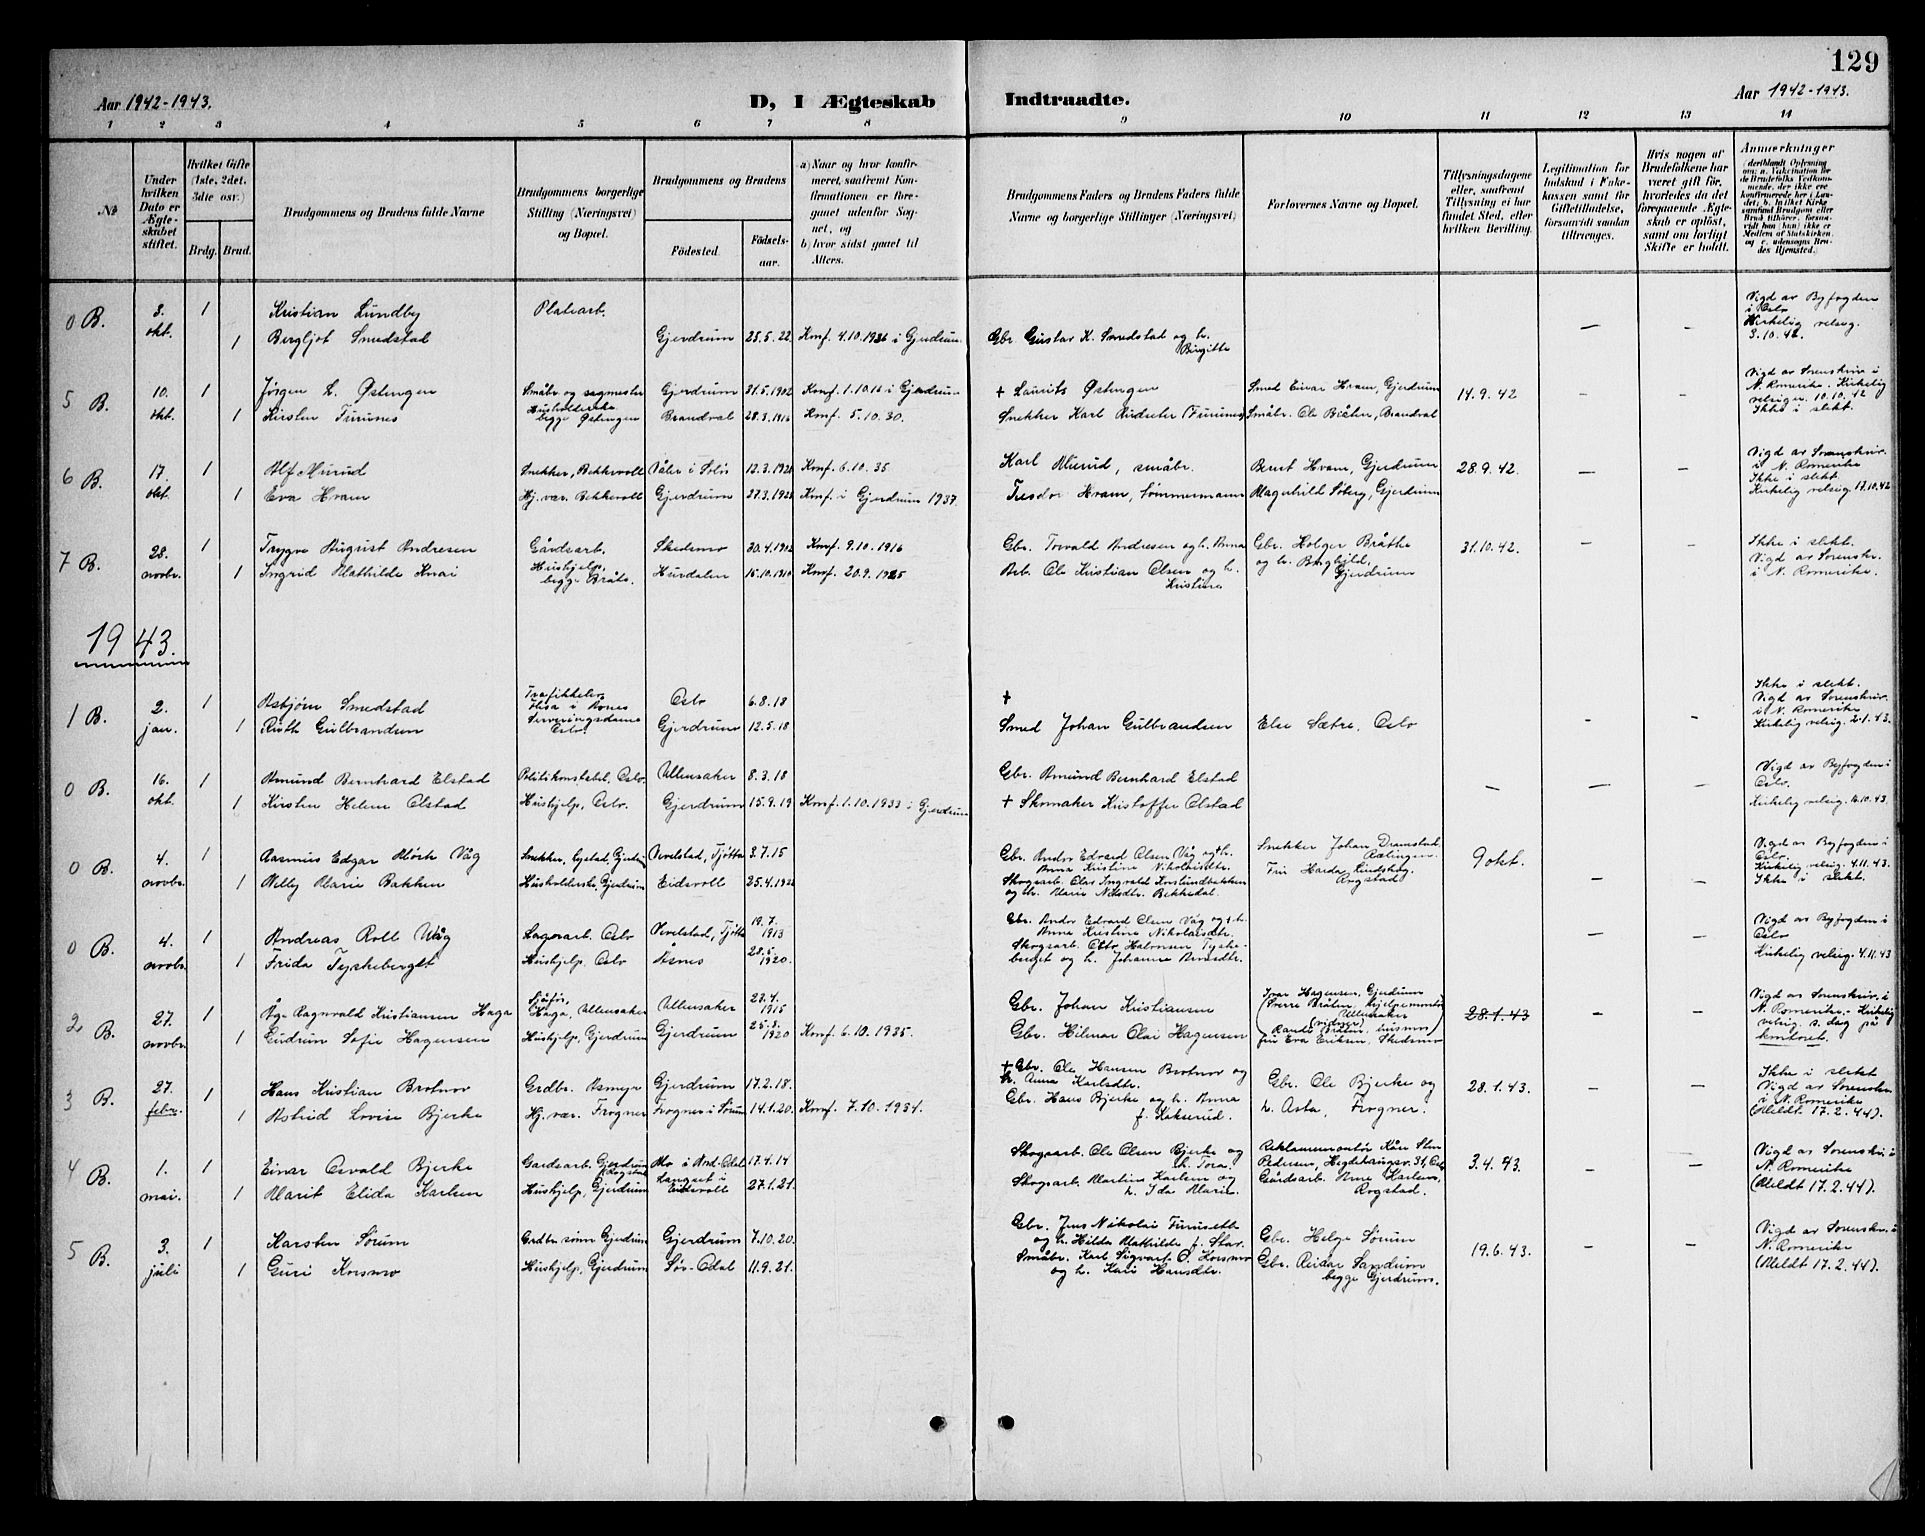 129
Aar 1942-1943.
D, I Ægteskab
Indtraadte.
Aar 1942-1943.
1 2 3 4 5 6 7 8 9 10 11 12 13 14
№
Under hvilken Dato er Ægteskabet stiftet.
Hvilket Gifte (1ste, 2det, 3die osv.)
Brdg. Brud.
Brudgommens og Brudens fulde Navne
Brudgommens borgerlige Stilling (Næringsvei) og Bopæl.
Brudgommens og Brudens
Födested.
Födselsaar.
a) Naar og hvor konfirmeret, saafremt Konfirmationen er foregaaet udenfor Sognet, og
b) hvor sidst gaaet til Alters.
Brudgommens Faders og Brudens Faders fulde Navne og borgerlige Stillinger (Næringsvei)
Forlovernes Navne og Bopæl.
Tillysningsdagene eller, saafremt Tillysning ei har fundet Sted, efter hvilken Bevilling.
Legitimation for Indskud i Enkekassen samt for Giftetilladelse, forsaavidt saadan tiltrænges.
Hvis nogen af Brudefolkene har været gift för, hvorledes da det foregaaende Ægteskab er oplöst, samt om lovligt Skifte er holdt.
Anmærkninger
(deriblandt Oplysning om: a. Vakcination for de Brudefolks Vedkommende, der ikke ere konfirmerede her i Landet; b. hvilket Kirkesamfund Brudgom eller Brud tilhörer, forsaavidt han (hun) ikke er Medlem af Statskirken, og c. udensogns Brudes Hjemsted.)
0 B. 3. okt. 1 Kristian Lundby Platearb. Vigd av Byfogden i Oslo
1 Bergljot Smedstad Gjerdrum 25.5.22 Konf. 4.10.1936 i Gjerdrum. Gbr. Gustav K. Smedstad og h. Birgitte — — Kirkelig velsig. 3.10.42.
5 B. 10. okt. 1 Jörgen L. Østengen Småbr. og sagmester Gjerdrum 31.5.1902 Konf. 1.10.16 i Gjerdrum + Laurits Østengen Smed Einar Hvam, Gjerdrum 14.9.42 - - Vigd av Sorenskriv. i N. Romerike. Kirkelig velsign. 10.10.42
1 Kirsten Furunes Husholderske begge Østengen Brandval 28.3.1916 Konf. 5.10.30. Snekker Karl (Furunes) Småbr. Ole Bråten, Brandval Ikke i slekt.
6 B. 17. okt. 1 Alf Murud Snekker, Bekkevolt Våler i Solör 12.3.1920 Konf. 6.10.35 Karl Murud, småbr. Bernt Hvam, Gjerdrum 28.9.42. — — Vigd av Sorenskriv. i N. Romerike
1 Eva Hvam Hj. vær. Bekkevolt Gjerdrum 27.3.1923 Konf. i Gjerdrum 1937. Teodor Hvam, tömmermann Magnhild Söberg, Gjerdrum Ikke i slekt. Kirkelig velsig. 17.10.42
7 B. 28. novbr. 1 Trygve August Andresen Gårdsarb. Skedsmo 30.4.1902 Konf. 9.10.1916 Gbr. Torvald Andresen og h. Anna Gbr. Holger Bråthe 31.10.42. - - Ikke i slekt.
1 Ingrid Mathilde Knai Hushjelp, begge Bråte. Hurdalen 15.10.1910 Konf. 20.9.1925 Arb. Ole Kristian Olsen og h. Kristine og h. Borghild, Gjerdrum Vigd av Sorenskr. i N. Romerike.
1943.
1 B. 2. jan. 1 Asbjörn Smedstad Trafikkelev Oslo 6.8.18 + Ikke i slekt. Vigd av Sorenskriv. i N. Romerike
1 Ruth Gulbrandsen Serveringsdame Oslo. Gjerdrum 12.5.18 Smed Johan Gulbrandsen Else Sætre, Oslo - - Kirkelig velsig. 2.1.43.
0 B. 16. okt. 1 Amund Bernhard Elstad Politikonstabel, Oslo Ullensaker 8.3.18 Gbr. Amund Bernhard Elstad Vigd av Byfogden i Oslo.
1 Kirsten Helene Olstad Hushjelp, Oslo. Gjerdrum 15.9.19 Konf. 1.10.1933 i Gjerdrum + Skomaker Kristoffer Olstad — — Kirkelig velsig. 16.10.43.
0 B. 4. novbr. 1 Rasmus Edgar Mörk Våg Snekker, Gjerdrum Vevelstad, Tjötta 3.7.15 Gbr. Andor Edvard Olsen Våg og + h. Anna Kristine Nikolaisdtr. Snekker Johan Dramstad, Rælingen 9 okt. Vigd av Byfogden i Oslo.
1 Nelly Marie Bakken Husholderske, Gjerdrum Eidsvoll 25.4.1922 Skogsarb. Olav Ingvald og h. Marie Nilsdtr. Bekkedal Fru Harda Lindshög, Rogstad - - Kirkelig velsig. 4.11.43. Ikke i slekt.
0 B. 4. novbr. 1 Andreas Roll Våg Lagerarb. Oslo Vevelstad, Tjötta 19.7.1913 Gbr. Andor Edvard Olsen Våg og + h. Anna Kristine Nikolaisdtr. Vigd av Byfogden i Oslo
1 Frida Tyskeberget Hushjelp, Oslo Åsnes 1920. Skogsarb. Otto Halvorsen Tyskeberget og h. Johanna — — Kirkelig velsig. 4.11.43
2 B. 27. novbr. 1 Åge Ragnvald Kristiansen Haga Sjåför, Haga, Ullensaker Ullensaker 23.4.1915 Gbr. Johan Kristiansen Ivar Hagensen, Gjerdrum (Sverre Bråten, hjelpemontör Ullensaker 28.1.43 - - Vigd av Sorenskriv. i N. Romerike.- Kirkelig
1 Gudrun Sofie Hagensen Hushjelp, Gjerdrum Gjerdrum 1920 Konf. 6.10.1935. Gbr. Hilmar Olai Hagensen Randi Bråten, husmor) fru Eva Eriksen, Skedsmo velsig. s. dag på kontoret.
3 B. 27. febr. 1 Hans Kristian Brotnov Grdbr. Asmyr Gjerdrum 17.2.18. + Gbr. Ole Hansen Brotnov og h. Anna Karlsdtr. Gbr. Ole Bjerke og 28.1.43. - - Ikke i slekt Vigd av Sorenskr. i N. Romerike
1 Astrid Lovise Bjerke Hj. vær. Frogner Frogner i Sörum 14.1.20. Konf. 7.10.1934. Gbr. Hans Bjerke og h. Anna f. Kokserud. h. Asta, Frogner. (Meldt 17.2.44).
4 B. 1. mai. 1 Einar Osvald Bjerke Gardsarb. Gjerdrum Rogstad Mo i Nord-Odal 17.4.14 Skogsarb. Ole Olsen Bjerke og h. Tora. Reklamemontör Kåre Sten Pedersen, Hegdehaugsv. 31, Oslo 3.4.43. — — Vigd av Sorenskr. i N. Romerike
1 Marit Elida Karlsen Hushjelp, Gjerdrum Langset i Eidsvoll 27.1.21. Skogsarb. Martin Karlsen og h. Ida Marie. Gårdsarb. Arne Karlsen, Rogstad. (Meldt 17.2.44).
5 B. 3. juli 1 Karsten Sörum Grdbr. sönn Gjerdrum Gjerdrum 7.10.20. Gbr. Jens Nikolai Furuseth og h. Hilda Mathilde f. Star. Gbr. Helge Sörum 19.6.43. - - Vigd av Sorenskr. i N. Romerike
1 Guri Korsmo Hushjelp, Gjerdrum Sör-Odal 11.9.21. Småbr. Karl Sigvart O. Korsmo og h. Kari Hansdtr. Gbr. Reidar Sandrum begge Gjerdrum. (Meldt 17.2.44).